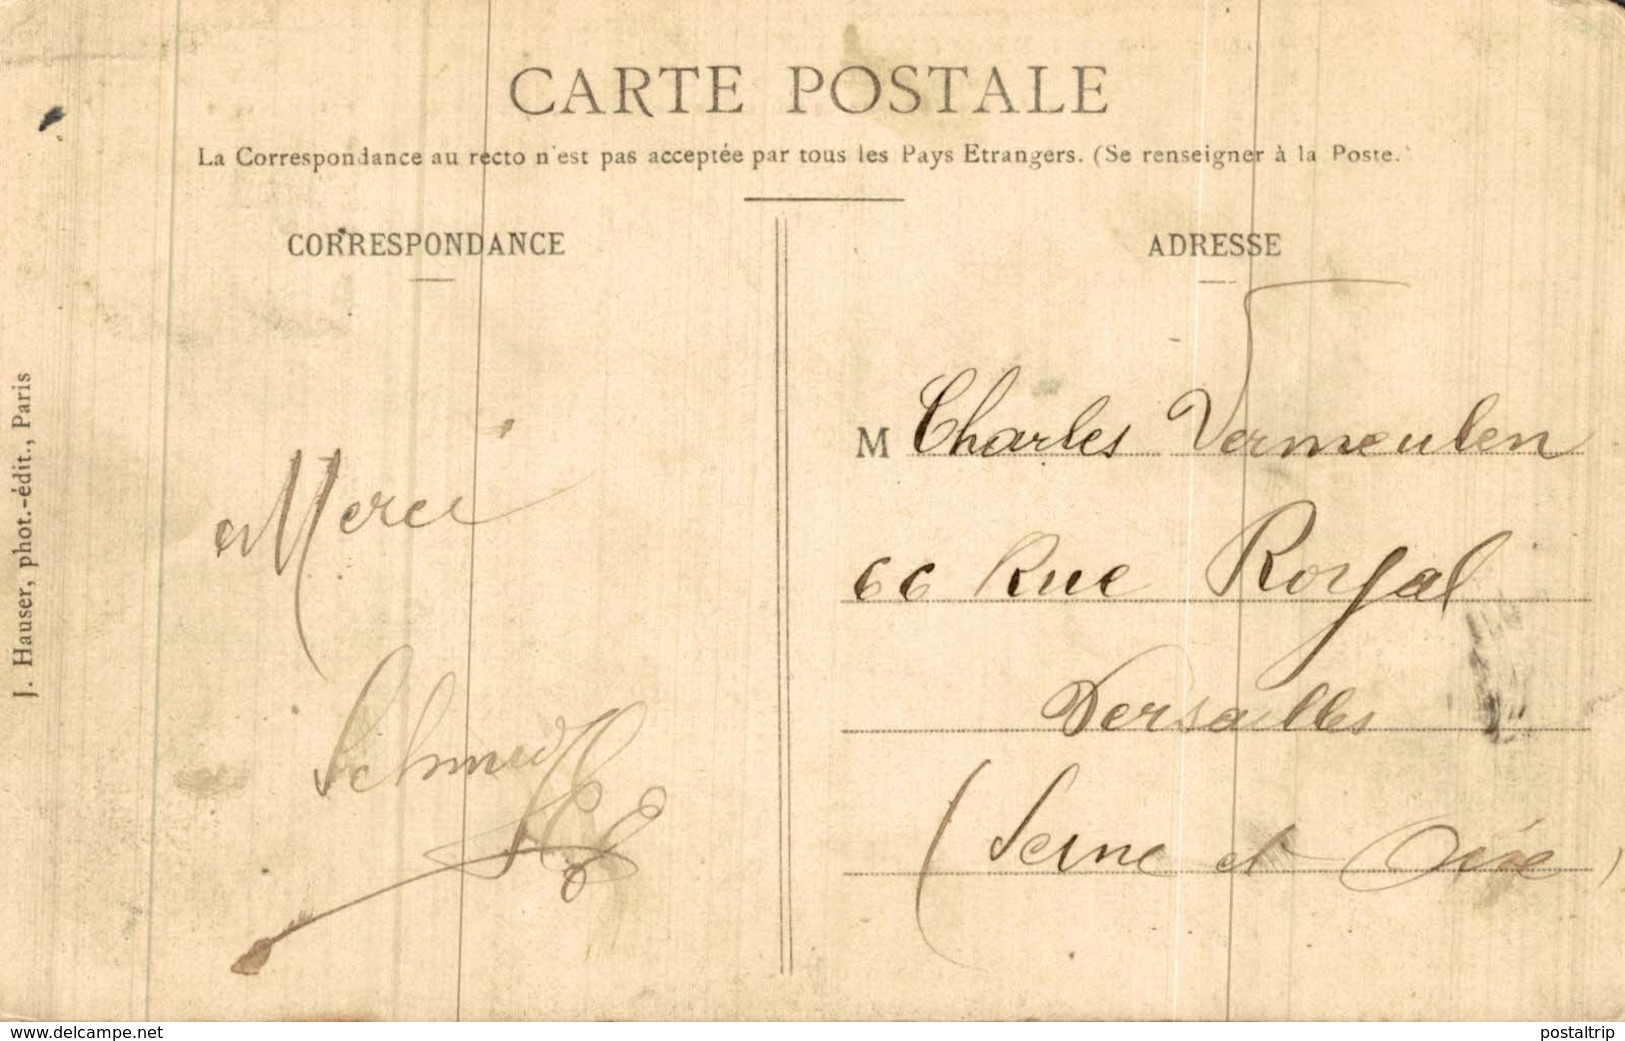 CARTE POSTALE
La Correspondance au recto n'est pas acceptée par tous les Pays Etrangers. (Se renseigner à la Poste.)
CORRESPONDANCE
ADRESSE
J. Hauser, phot.-édit., Paris
Merci
M Charles Vermeulen
66 Rue Royal
Versailles
(Seine et Oise)
www.delcampe.net
postaltrip